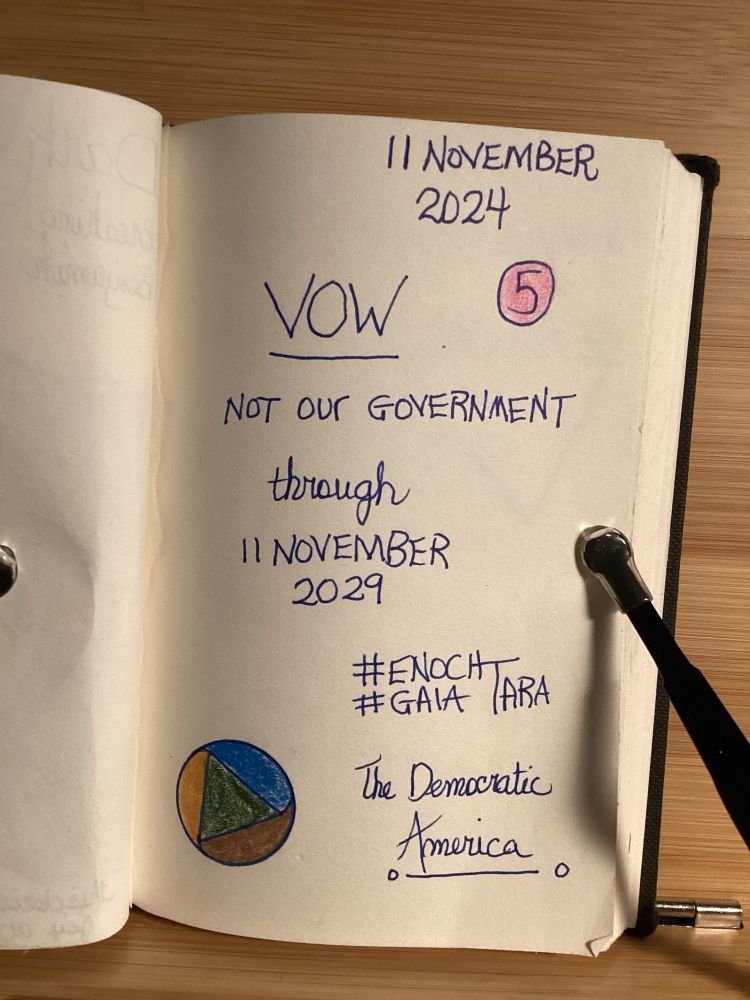 11 NOVEMBER
2024
VOW
5
NOT OUr GOVERNMENT
through
11 NOVEMBER
2029
#ENOCH TARA
#GAIA
The Democratic
America